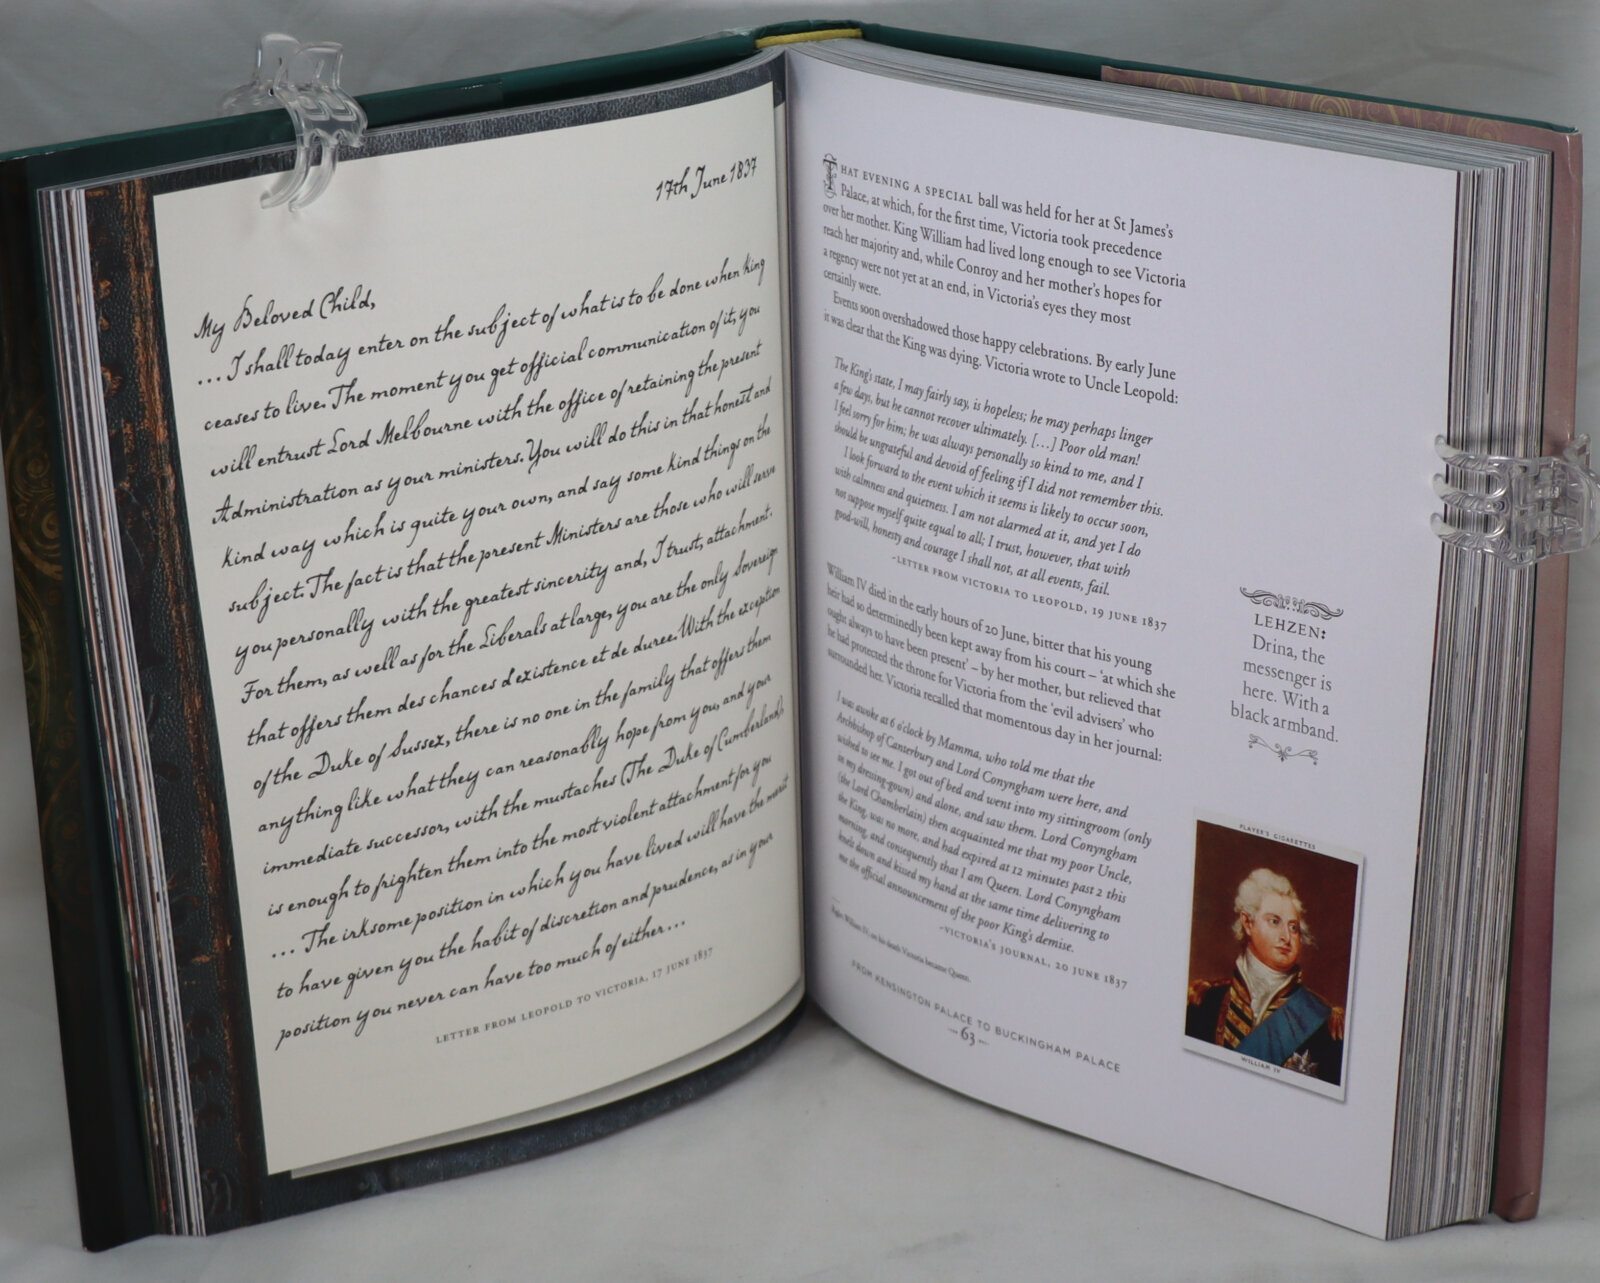 17th June 1837
My Beloved Child,
... I shall today enter on the subject of what is to be done when King
ceases to live. The moment you get official communication of it, you
will entrust Lord Melbourne with the office of retaining the present
Administration as your ministers. You will do this in that honest and
kind way which is quite your own, and say some kind things on the
subject. The fact is that the present Ministers are those who will serve
you personally with the greatest sincerity and, I trust, attachment.
For them, as well as for the Liberals at large, you are the only Sovereign
that offers them des chances d'existence et de duree. With the exception
of the Duke of Sussex, there is no one in the family that offers them
anything like what they can reasonably hope from you, and your
immediate successor, with the mustaches (The Duke of Cumberland),
is enough to frighten them into the most violent attachment for you
... The irksome position in which you have lived will have the merit
to have given you the habit of discretion and prudence, as in your
position you never can have too much of either...
LETTER FROM LEOPOLD TO VICTORIA, 17 JUNE 1837
THAT EVENING A SPECIAL ball was held for her at St James's
Palace, at which, for the first time, Victoria took precedence
over her mother. King William had lived long enough to see Victoria
reach her majority and, while Conroy and her mother's hopes for
a regency were not yet at an end, in Victoria's eyes they most
certainly were.
Events soon overshadowed those happy celebrations. By early June
it was clear that the King was dying. Victoria wrote to Uncle Leopold:
The King's state, I may fairly say, is hopeless; he may perhaps linger
a few days, but he cannot recover ultimately. [...] Poor old man!
I feel sorry for him; he was always personally so kind to me, and I
should be ungrateful and devoid of feeling if I did not remember this.
I look forward to the event which it seems is likely to occur soon,
with calmness and quietness. I am not alarmed at it, and yet I do
not suppose myself quite equal to all; I trust, however, that with
good-will, honesty and courage I shall not, at all events, fail.
-LETTER FROM VICTORIA TO LEOPOLD, 19 JUNE 1837
William IV died in the early hours of 20 June, bitter that his young
heir had so determinedly been kept away from his court – 'at which she
ought always to have been present' – by her mother, but relieved that
he had protected the throne for Victoria from the 'evil advisers' who
surrounded her. Victoria recalled that momentous day in her journal:
I was awoke at 6 o'clock by Mamma, who told me that the
Archbishop of Canterbury and Lord Conyngham were here, and
wished to see me. I got out of bed and went into my sittingroom (only
in my dressing-gown) and alone, and saw them. Lord Conyngham
(the Lord Chamberlain) then acquainted me that my poor Uncle,
the King, was no more, and had expired at 12 minutes past 2 this
morning, and consequently that I am Queen. Lord Conyngham
knelt down and kissed my hand at the same time delivering to
me the official announcement of the poor King's demise.
-VICTORIA'S JOURNAL, 20 JUNE 1837
Right: William IV, on his death Victoria became Queen.
FROM KENSINGTON PALACE TO BUCKINGHAM PALACE
63
LEHZEN:
Drina, the
messenger is
here. With a
black armband.
PLAYER'S CIGARETTES
WILLIAM IV